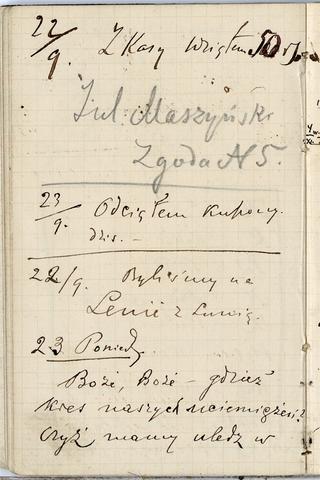 22/9. Z Kasy wziąłem 50 r.
Jul. Maszyński
Zgoda N 5.
23/9. Odciąłem kupony.
dziś. —
22/9. Byliśmy na
Lenie z Lunią.
23 Poniedz.
Boże, Boże – gdzież
kres naszych uciemiężeń?
Czyż mamy uledz w